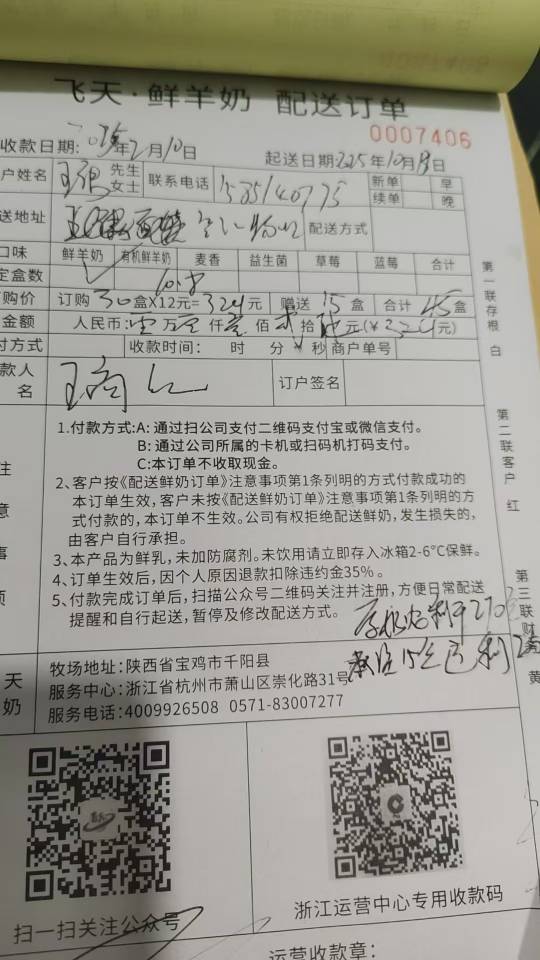 飞天·鲜羊奶 配送订单
0007406
收款日期: 年2月10日 起送日期2025年10月 日
户姓名 先生 女士 联系电话 新单 早
续单 晚
送地址 配送方式
口味 鲜羊奶 有机鲜羊奶 麦香 益生菌 草莓 蓝莓 合计
定盒数
购价 订购30盒X12元=324元 赠送15盒 合计45盒
金额 人民币: 万 仟 佰 拾 元(¥324元)
付方式 收款时间: 时 分 秒 商户单号
款人名 订户签名
1.付款方式:A: 通过扫公司支付二维码支付宝或微信支付。
B: 通过公司所属的卡机或扫码机打码支付。
C:本订单不收取现金。
2、客户按《配送鲜奶订单》注意事项第1条列明的方式付款成功的
本订单生效,客户未按《配送鲜奶订单》注意事项第1条列明的方
式付款的,本订单不生效。公司有权拒绝配送鲜奶,发生损失的,
由客户自行承担。
3、本产品为鲜乳,未加防腐剂。未饮用请立即存入冰箱2-6℃保鲜。
4、订单生效后,因个人原因退款扣除违约金35%。
5、付款完成订单后,扫描公众号二维码关注并注册,方便日常配送
提醒和自行起送,暂停及修改配送方式。
注
意
事
项
第一联存根 白
第二联客户 红
第三联财务 黄
天
奶
牧场地址:陕西省宝鸡市千阳县
服务中心:浙江省杭州市萧山区崇化路31号
服务电话:4009926508 0571-83007277
扫一扫关注公众号
浙江运营中心专用收款码
运营收款章: